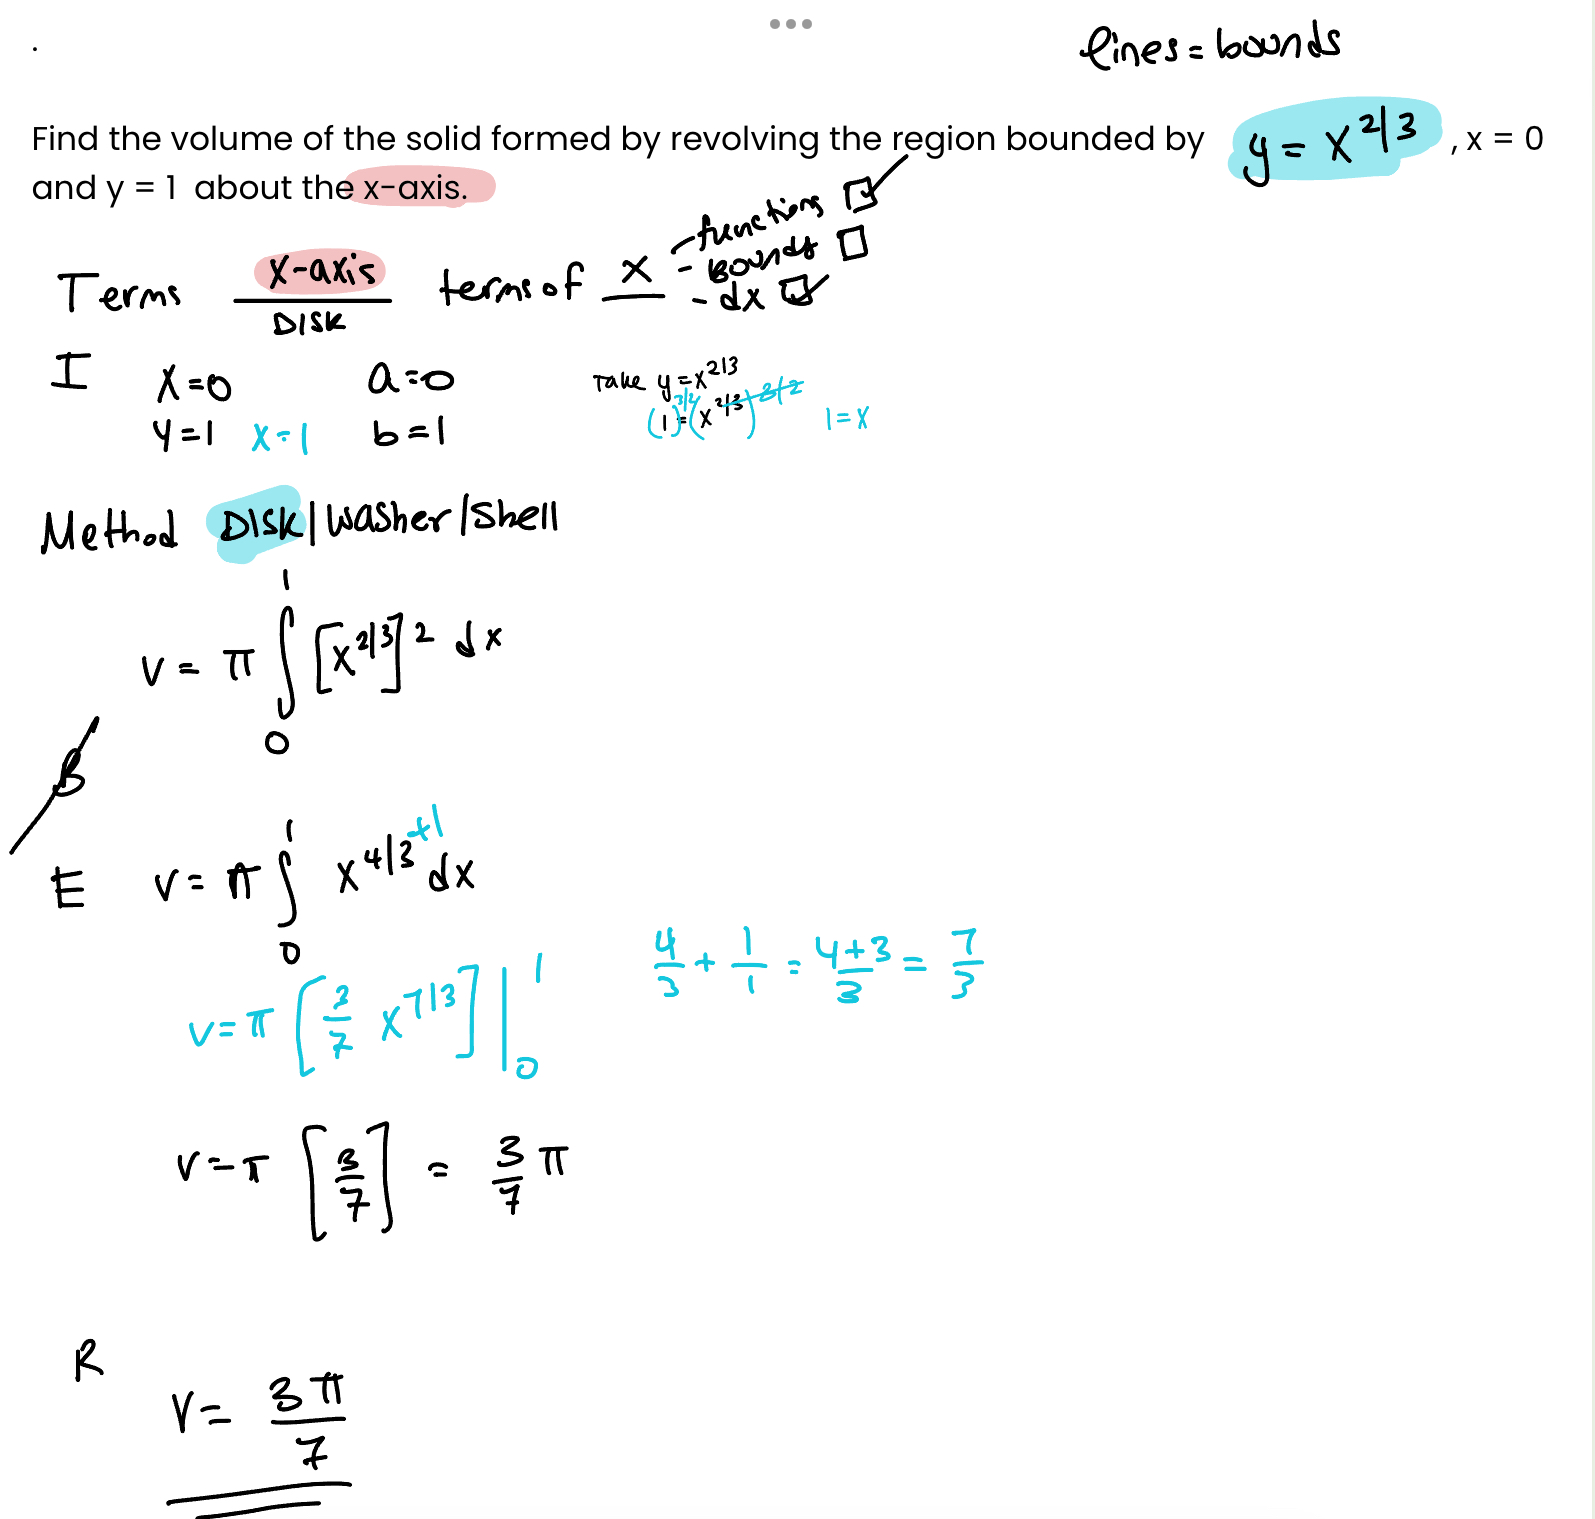 lines = bounds
Find the volume of the solid formed by revolving the region bounded by y = x^2/3 , x = 0
and y = 1 about the x-axis.
Terms x-axis terms of x - functions
DISK - Bounds
- dx
I x=0 a=0 Take y = x^2/3
y=1 x=1 b=1 (1)^3/2 = (x^2/3)^3/2 1=x
Method DISK/washer/shell
v = π ∫_0^1 [x^2/3]^2 dx
B
E v = π ∫_0^1 x^4/3 +1 dx
4/3 + 1/1 = 4+3/3 = 7/3
v = π [3/7 x^7/3] |_0^1
v = π [3/7] = 3/7 π
R
v = 3π/7